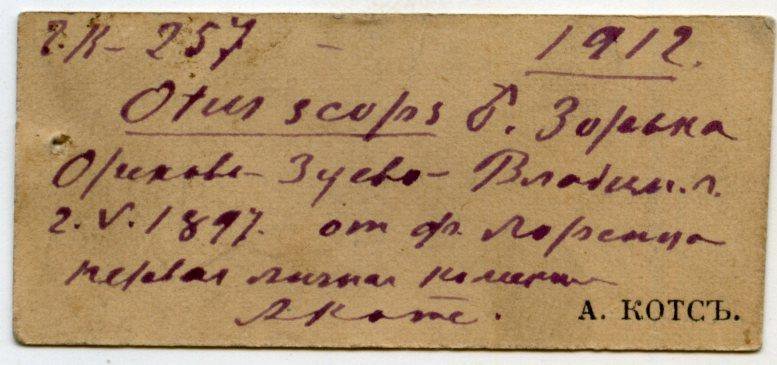 257 – 1912.
Otus scops ♂. Зорька
Орехово-Зуево - Владим. г.
2.V.1897. от Ф. Лоренца
первая личная
А. КОТСЪ.